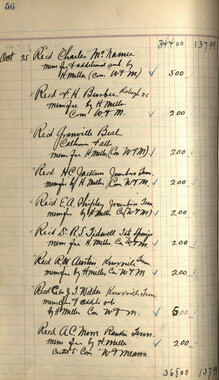 56
344 00 1379
Oct 25 Rec'd Charles McNamee
mem fee & additional sub by
H Miller (Com W & M) ✓ 5 00
Rec'd F. H. Busbee Raleigh
mem fee by H Miller
Com W & M. ✓ 2 00
Rec'd Granville Beal
Calhoun Falls
mem fee H Miller (Com W & M) ✓ 2 00
Rec'd H C Jackson Jonesboro Tenn
by H Miller (Com W & M. ✓ 2 00
Rec'd E. A. Shipley Jonesboro Tenn
mem fee by H Miller Co (W & M) ✓ 2 00
Rec'd Dr. R. J. Tidwell
mem fee H. Miller Com W & M. ✓ 2 00
Rec'd R M Austin Knoxville Tenn
mem fee by H Miller Com W & M. ✓ 2 00
Rec'd J T Wilder Knoxville Tenn
mem fee & addit sub
by H Miller Com W & M ✓ 5 00
Rec'd A. C. Moore Tenn.
mem fee by H Miller
Com W & Means ✓ 2 00
368 00 1379